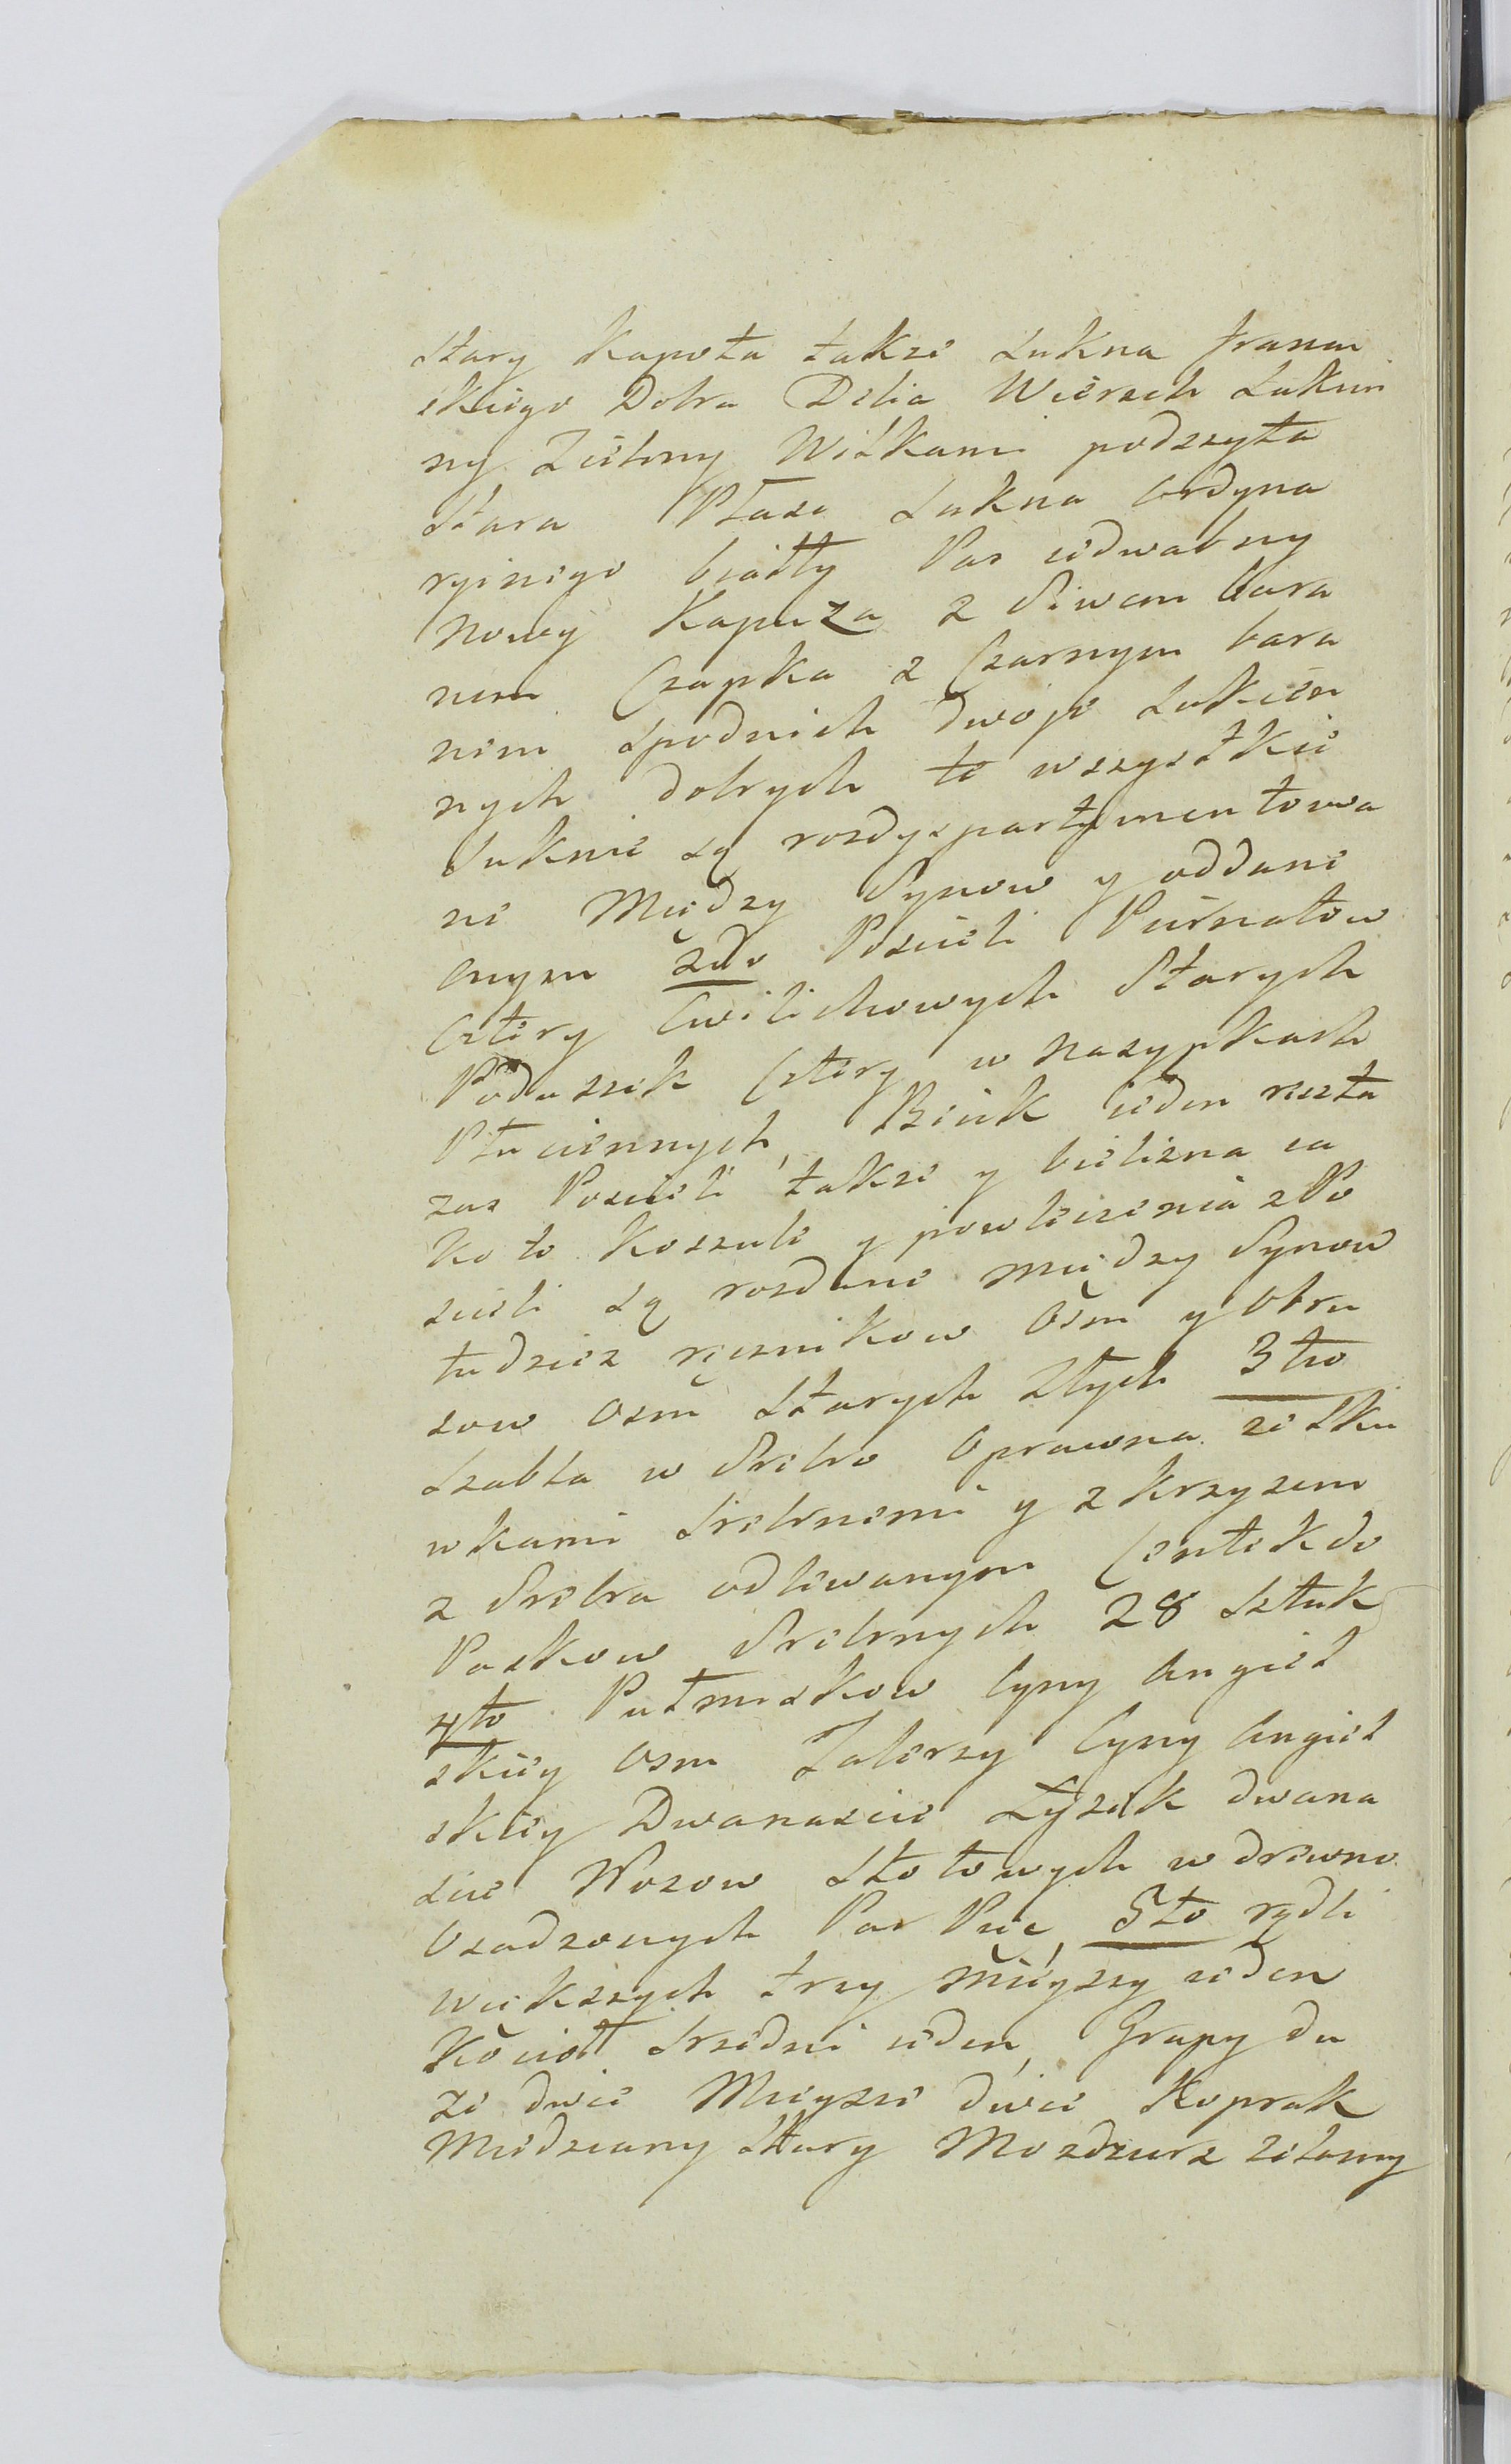 stary Kapota takze sukna francu
skiego Dobra Delia Wierzch Sukien
ny Zielony Wilkami podszyta
stara Płasz Sukna ordyna
ryinego białły Pas iedwabny
nowy Kapuza z Siwem bara
nem Czapka z Czarnym bara
nem spodnich dwoje Sukien
nych dobrych te wszystkie
Suknie są rozdyspartymentowa
ne Między Synow y oddane
onym 2do Poscieli Piernatow
Cztery Cwelichowych Starych
Poduszek Cztery w nasypkach
Płuciennych, Beiuk ieden reszta
zas Poscieli takze y bielizna ia
ko to Koszule y powleczenia z Po
scieli są rozdane między Synow
tudziez ręcznikow osm y obru
sow osm starych złych 3tio
Szabla w Srebro oprawna ze sku
wkami srebrnemi y z krzyzem
z Srebra odlewanym Centek do
Paskow Srebrnych 28 sztuk
4to Pułmiskow Cyny Angiel
skiey osm Talerzy Cyny Angiel
skiey Dwanascie Łyzek dwana
scie Nozow stołowych w drewno
osadzonych Par Pięc, 5to rądli
wiekszych trzy Mnieyszy ieden
Kocioł srzedni ieden, Grapy du
ze dwie Mnieysze dwie Koprak
Miedziany stary Mozdzierz zelazny